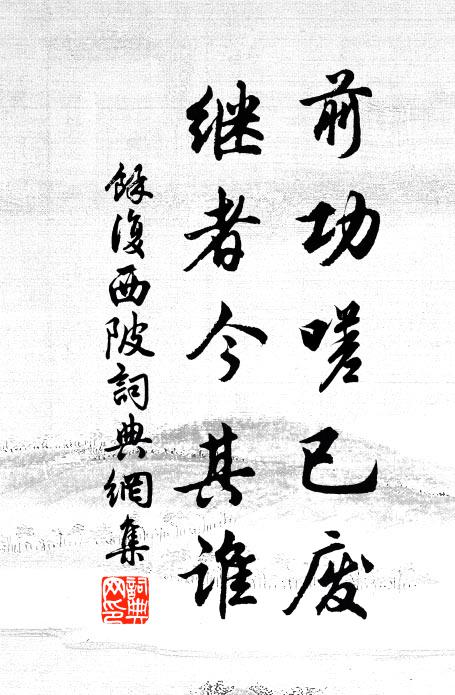 前功嗟已废
继者今其谁
餘復西陂詞典網集
詞典網印